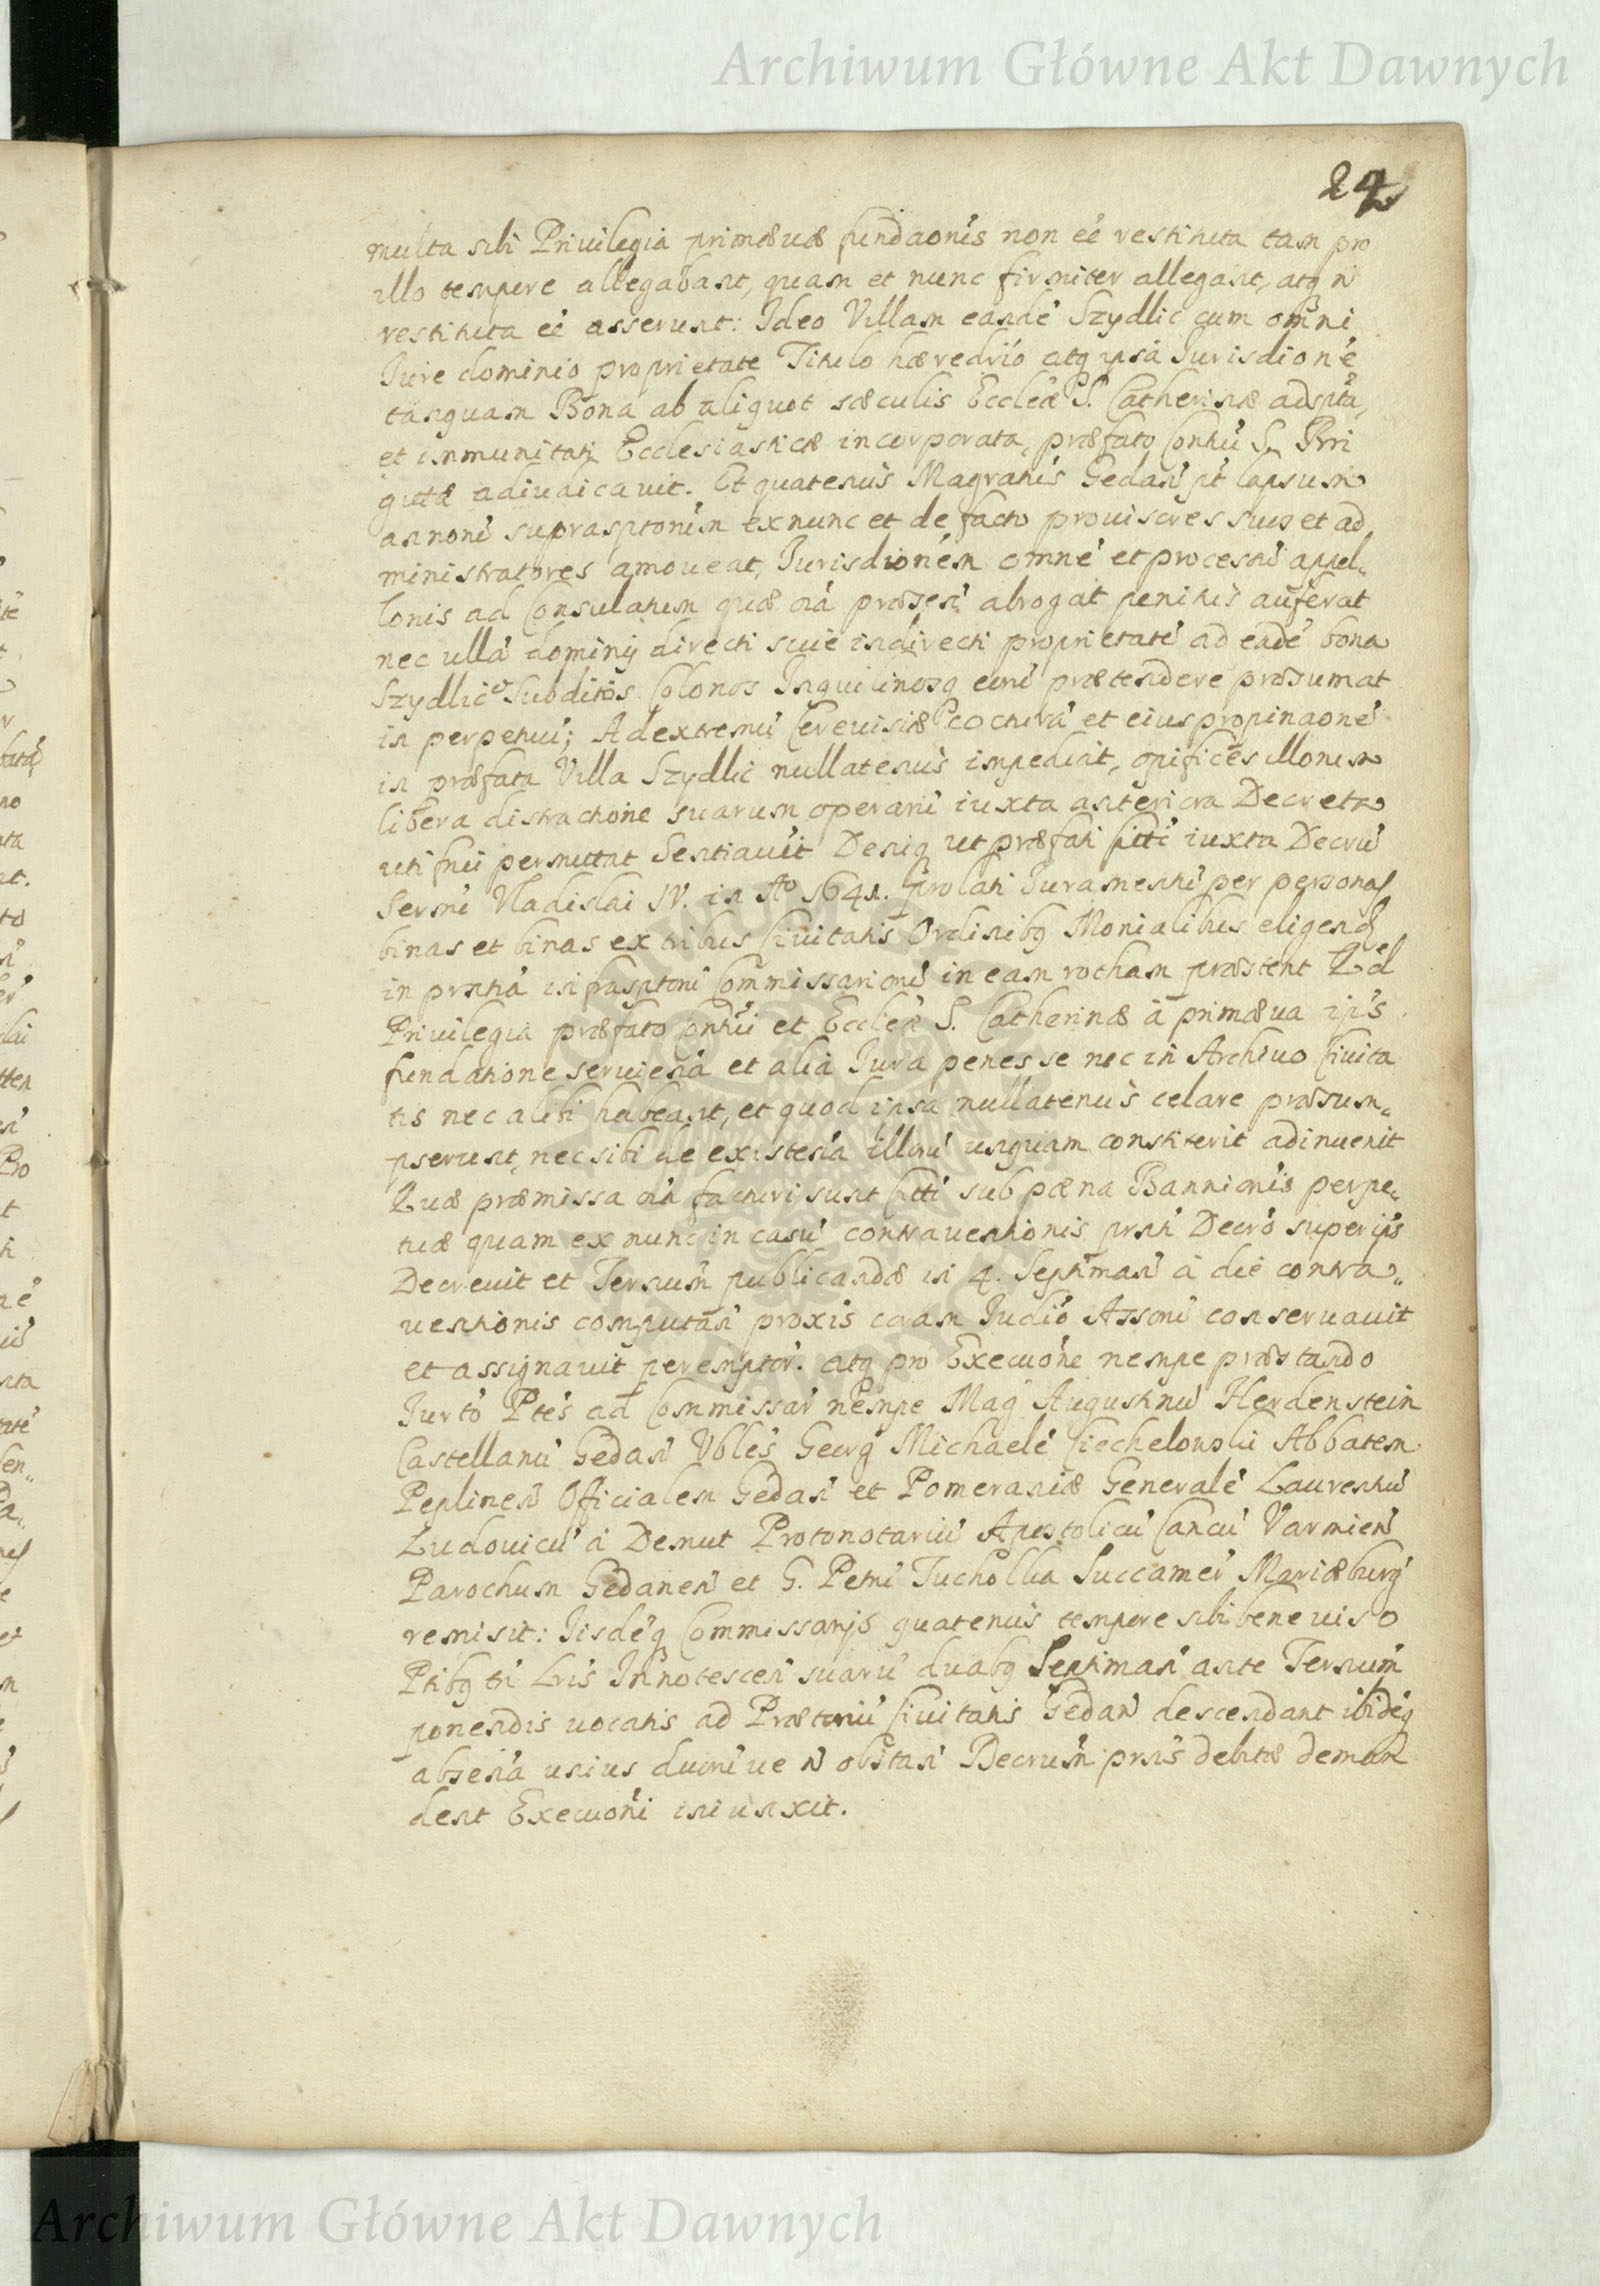 Archiwum Główne Akt Dawnych
24
multa sibi Privilegia primævæ fundaonis non eé restituta tam pro
illo tempore allegabant, quam et nunc firmiter allegant, atq n
restituta eé asserunt: Ideo Villam eandé Szydlic cum omni
Jure dominio proprietate Titulo hæredrió atq ipsá Jurisdioné
tanquam Bona ab aliquot sæculis Eccleæ S. Catherinæ adspta,
et immunitati Ecclesiasticæ incorporata, præfato Contui S. Bri
gittæ adiudicavit. Et quatenus Magratus Gedan pt lapsum
annoru supraspronem ex nunc et de facto provisores suos et ad
ministratores amoveat, Jurisdionem omné et processu appel„
lonis ad Consulatum quæ oia præsen abrogat penitus auferat
nec ullá dominij directi seu indirecti proprietaté ad eadé bona
Szydlic Subditos Colonos Inquilinosq eoru prætendere præsumat
in perpetuu; Ad extremu Cerevisiæ cocturá et eius propinaoné
in præfata Villa Szydlic nullatenus impediat, opifices illorum
libera distractione suarum operaru iuxta anteriora Decreta
uti frui permittat Sentiavit Deniq ut præfati Citti iuxta Decru
Sermi Vladislai IV. in Ao 1641. prolati Juramentu per personas
binas et binas ex tribus Civitatis Ordinibq Monialibus eligend
in prntia infrasptoru Commissarioru in eam rotham præstent Qd
Privilegia præfato Contui et Eccleæ S. Catherinæ á primæva ips
fundatione serviená et aliá Jura penes se nec in Archivo Civita
tis nec alibi habeant, et quod ipsa nullatenus celare præsum„
pserunt, nec sibi de existená illoru unquam constiterit adinvenit
Quæ præmissa oia facturi sunt Citti sub pæna Bannionis perpe„
tuæ quam ex nunc in casu contraventionis prnti Decro super ijs
Decrevit et Termum publicandæ in 4. Septiman á die contra„
ventionis computan proxis coram Judio Assoru conservavit
et assignavit peremptor. atq pro Execuone nempe præstando
Jurto Ptes ad Commissar nempe Mag Augustinu Herdenstein
Castellanu Gedan Vbles Georg Michaelé Ciechelowski Abbatem
Peplinen Officialem Gedan et Pomeraniæ Generalé Laurentiu
Ludovicu á Demut Protonotariu Apostolicu Cancu Varmien
Parochum Gedanen et G. Petru Tucholka Succamer Mariæburg
remisit: Iisdéq Commissarijs quatenus tempore sibi bene viso
Ptibq tn Lris Innotescen suaru duabq Septiman ante Termum
ponendis vocatis ad Prætoriu Civitatis Gedan descendant ibidéq
absená unius duoruve n obstan Decrum prns debitæ deman
dent Execuoni iniunxit.
Archiwum Główne Akt Dawnych